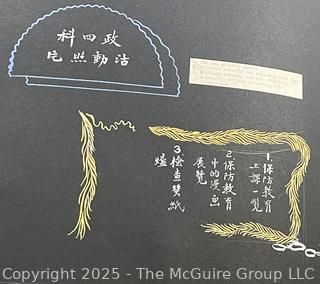 政四科
活動照片
1. 保防教育
上課一覽
2 保防教育
中的漫画
展覽
3 檢查焚紙
爐
Copyright 2025 - The McGuire Group LLC